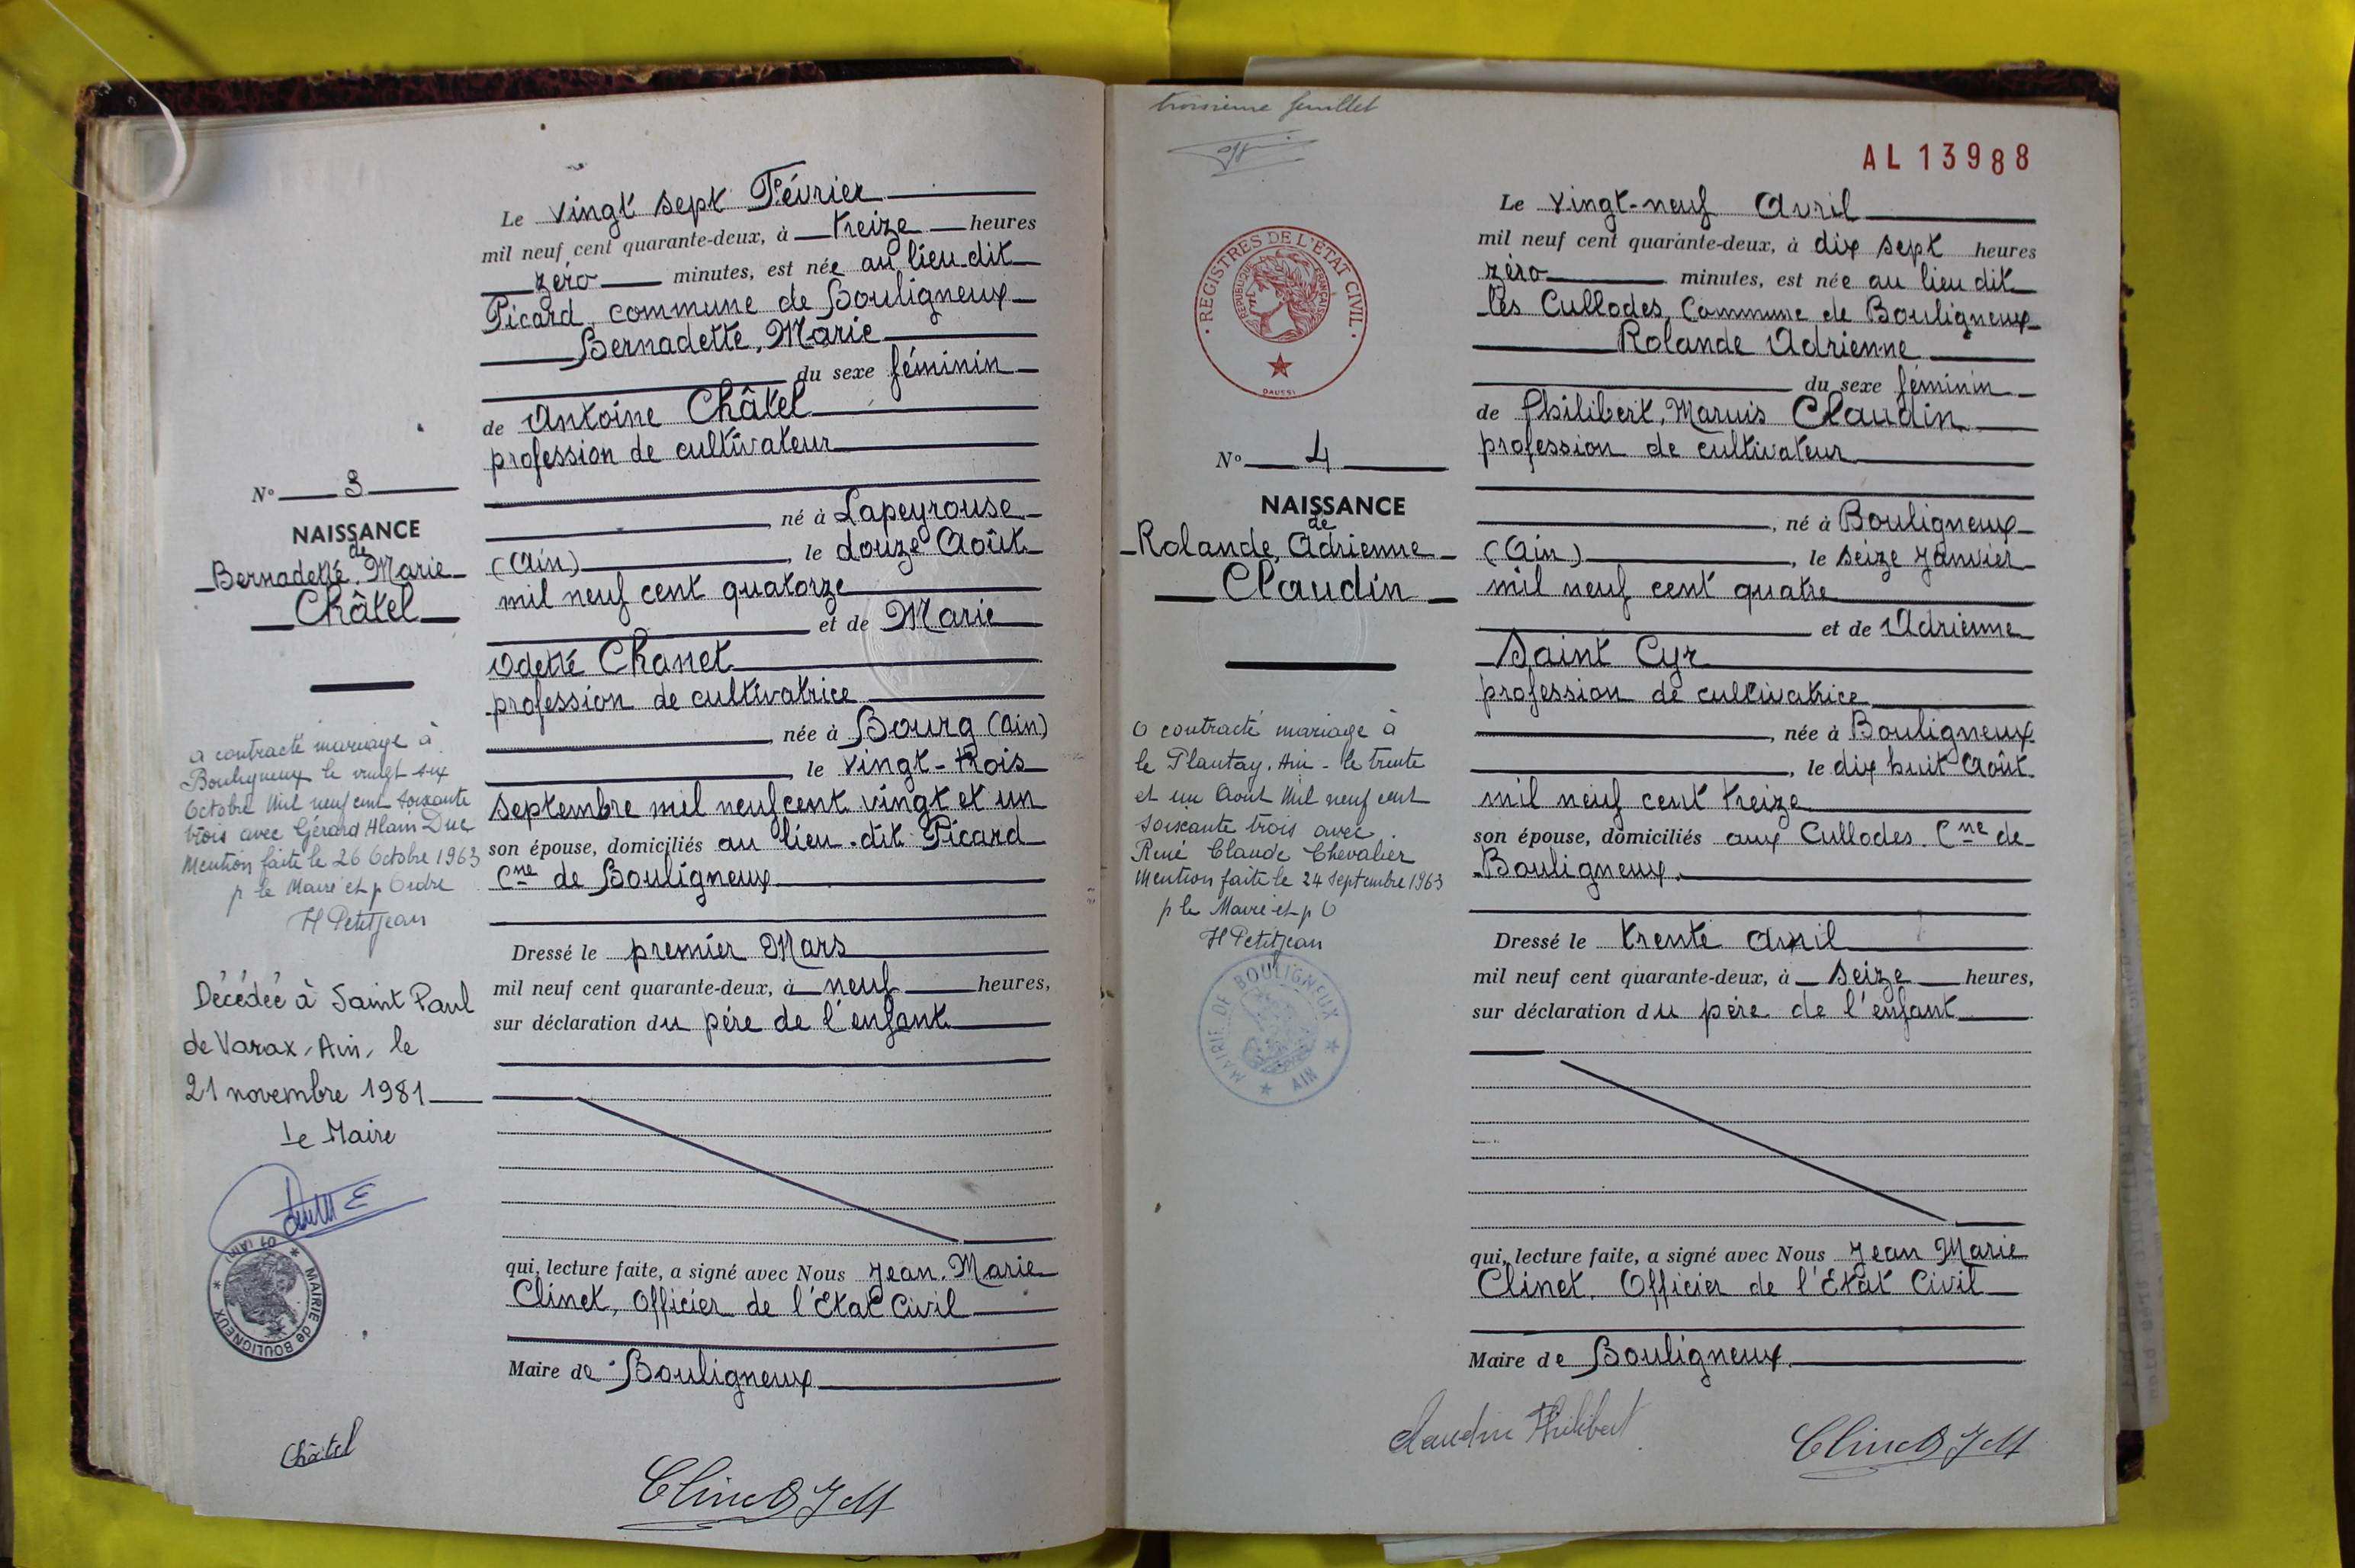 N° 3
NAISSANCE
de
Bernadette, Marie
Châtel
a contracté mariage à
Bouligneux le vingt six
Octobre Mil neuf cent soixante
trois avec Gérard Alain Duc
Mention faite le 26 Octobre 1963
p le Maire et p Ordre
H Petitjean
Décédée à Saint Paul
de Varax, Ain, le
21 novembre 1981
Le Maire
MAIRIE de BOULIGNEUX
01 (Ain)
Le vingt sept Février
mil neuf cent quarante-deux, à treize heures
zéro minutes, est née au lieu dit
Picard, commune de Bouligneux
Bernadette, Marie
du sexe féminin
de Antoine Châtel
profession de cultivateur
né à Lapeyrouse
(Ain), le douze Août
mil neuf cent quatorze
et de Marie
Odette Chanet
profession de cultivatrice
née à Bourg (Ain)
, le vingt-trois
septembre mil neuf cent vingt et un
son épouse, domiciliés au lieu-dit Picard
Cne de Bouligneux
Dressé le premier Mars
mil neuf cent quarante-deux, à neuf heures,
sur déclaration du père de l'enfant
qui, lecture faite, a signé avec Nous Jean-Marie
Clinet, Officier de l'Etat Civil
Maire de Bouligneux
Châtel
Clinet J M
troisième feuillet
AL 13988
REGISTRES DE L'ÉTAT CIVIL
REPUBLIQUE FRANÇAISE
DAUSSI
N° 4
NAISSANCE
de
Rolande, Adrienne
Claudin
a contracté mariage à
le Plantay, Ain - le trente
et un Aout Mil neuf cent
soixante trois avec
René Claude Chevalier
Mention faite le 24 Septembre 1963
p le Maire et p O
H Petitjean
MAIRIE DE BOULIGNEUX
AIN
Le vingt-neuf Avril
mil neuf cent quarante-deux, à dix sept heures
zéro minutes, est née au lieu dit
les Cullodes, Commune de Bouligneux
Rolande Adrienne
du sexe féminin
de Philibert, Maruis Claudin
profession de cultivateur
, né à Bouligneux
(Ain), le seize Janvier
mil neuf cent quatre
et de Adrienne
Saint Cyr
profession de cultivatrice
, née à Bouligneux
, le dix huit Août
mil neuf cent treize
son épouse, domiciliés aux Cullodes. Cne de
Bouligneux.
Dressé le trente Avril
mil neuf cent quarante-deux, à seize heures,
sur déclaration du père de l'enfant
qui, lecture faite, a signé avec Nous Jean Marie
Clinet, Officier de l'Etat Civil
Maire de Bouligneux
Claudin Philibert
Clinet J M